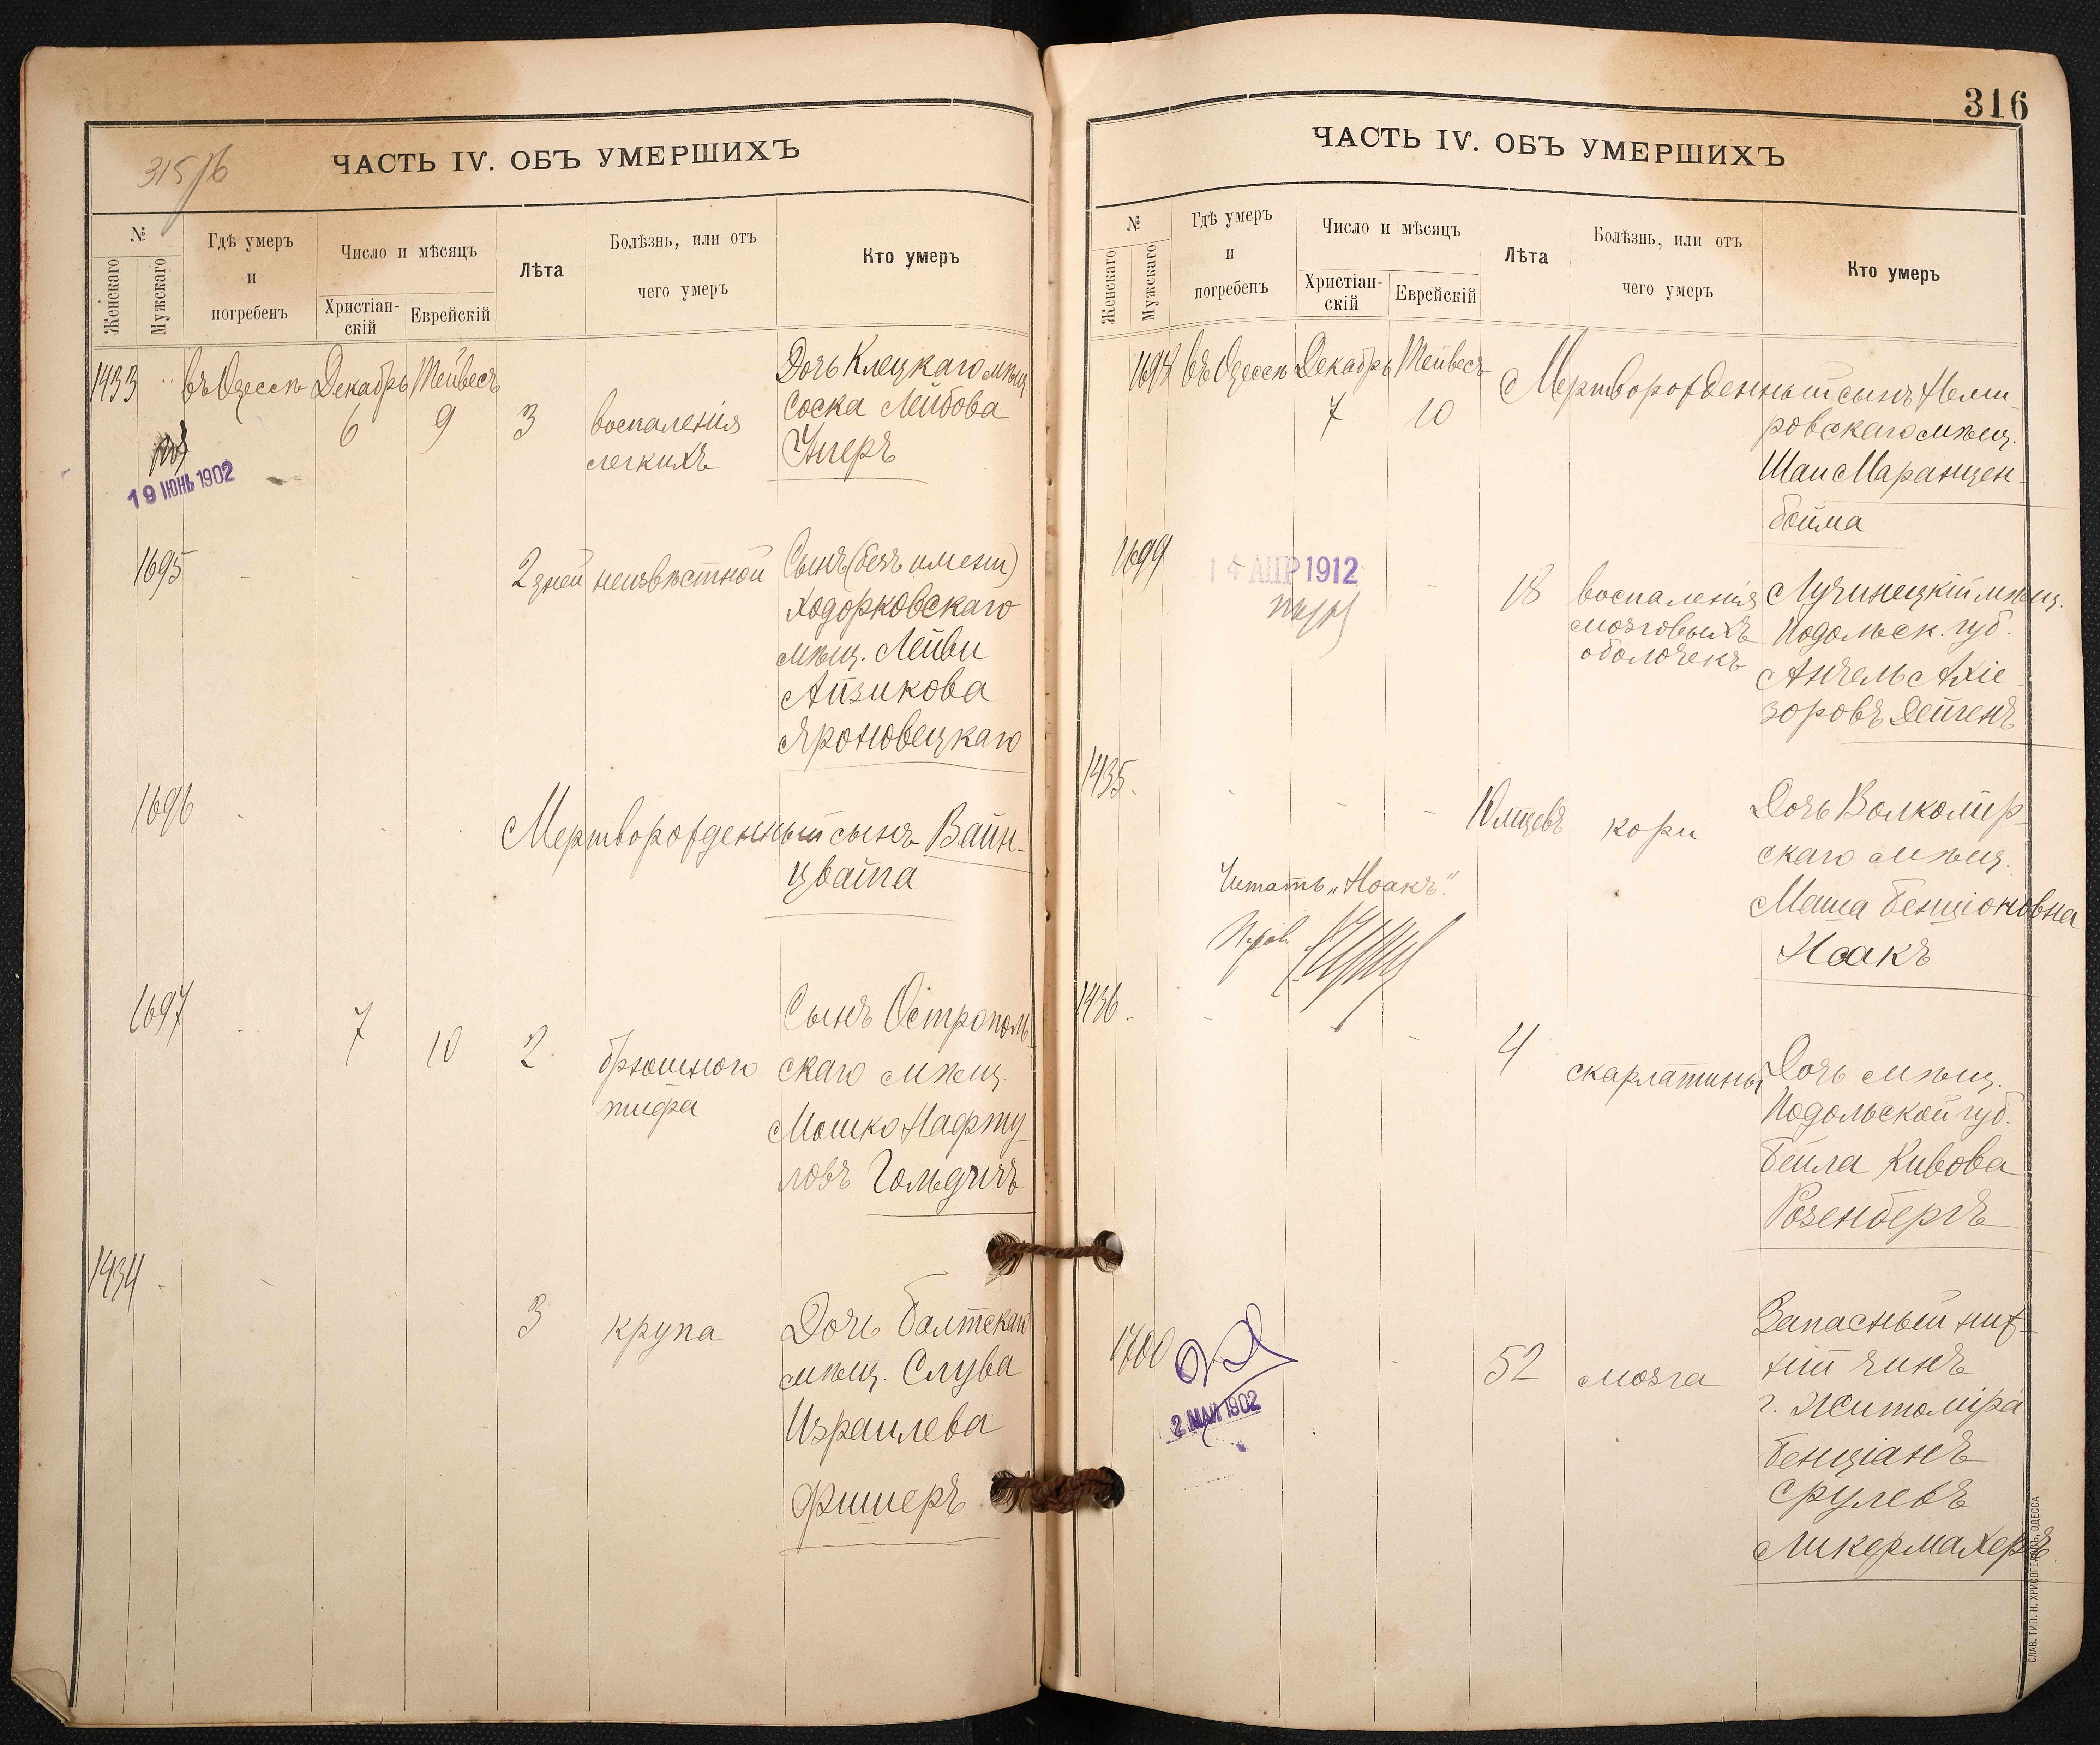 315/б
ЧАСТЬ IV. ОБЪ УМЕРШИХЪ
№
Женскаго
Мужскаго
Гдѣ умеръ
и
погребенъ
Число и мѣсяцъ
Христіан-
скій
Еврейскій
Лѣта
Болѣзнь, или отъ
чего умеръ
Кто умеръ
1433 въ Одессѣ Декабрь Тейвесъ
6 9 3 воспаленія
легкихъ
Дочь Клецкаго мѣщ.
Соска Лейбова
Унгеръ
19 ІЮНЬ 1902
1695 2 дней неизвѣстной
Сынъ (безъ имени)
Ходорковскаго
мѣщ. Лейви
Айзикова
Яроновецкаго
1696
Мертворожденный сынъ Вайн-
цвайга
1697 7 10 2 брюшного
тифа
Сынъ Острополь-
скаго мѣщ.
Мошко Нафту-
ловъ Гольдичъ
1434 3 крупа
Дочь Балтскаго
мѣщ. Слува
Израилева
Фишеръ
316
ЧАСТЬ IV. ОБЪ УМЕРШИХЪ
№
Женскаго
Мужскаго
Гдѣ умеръ
и
погребенъ
Число и мѣсяцъ
Христіан-
скій
Еврейскій
Лѣта
Болѣзнь, или отъ
чего умеръ
Кто умеръ
1698 въ Одессѣ Декабрь Тейвесъ
7 10
Мертворожденный сынъ Неми-
ровскаго мѣщ.
Шаи Маранцен-
бойма
1699
14 АПР 1912
18 воспаленія
мозговыхъ
оболочекъ
Лучинецкій мѣщ.
Подольск. губ.
Анчель Ахіе-
зоровъ Дейгенъ
1435. 10 мѣцевъ кори
Дочь Волкомір-
скаго мѣщ.
Маша Бенціоновна
Ноакъ
Читать „Ноакъ".
1436. 4 скарлатины
Дочь мѣщ.
Подольской губ.
Бейла Кивова
Розенбергъ
1700 52 мозга
2 МАЙ 1902
Запасный ниж-
ній чинъ
г. Житоміра
Бенціанъ
Срулевъ
Ликермахеръ
СЛАВ. ТИП. Н. ХРИСОГЕЛОСЪ, ОДЕССА